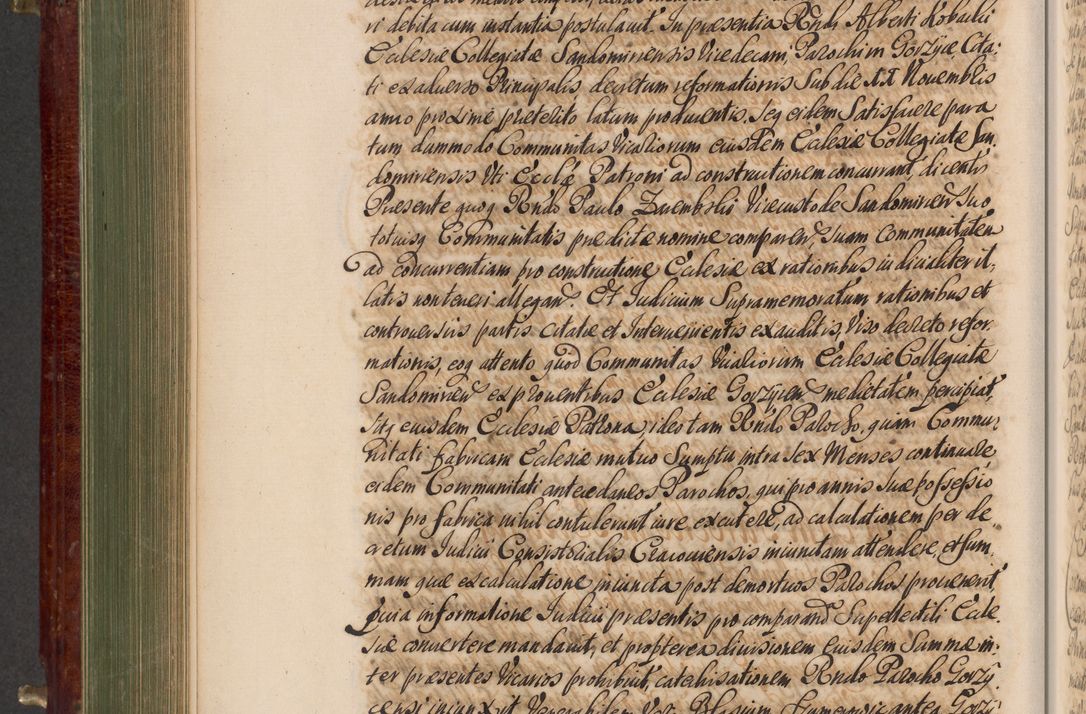 ri debita cum instantia postulavit. In præsentia Rndi Alberti Kobulii
Ecclesiæ Collegiatæ Sandomiriensis Vicedecani, Parochi in Gorzÿce Cita-
ti ex adverso Principalis decretum reformationis sub die XX Novembris
anno proxime præterito latum producentis. Seq eidem Satisfacere para
tum dummodo Communitas Vicariorum eiusdem Ecclesiæ Collegiatæ San
domiriensis Uti Ecclæ Patroni ad constructionem concurrant, dicentis
Præsente quoq Rndo Paulo Zarembski Vicecustode Sandomirien suo
totiusq Communitatis prædictæ nomine comparen, suam Communitatem
ad concurrentiam pro constructione Ecclesiæ ex rationibus iudicialiter il-
latis non teneri allegan. Et Iudicium Supramemoratum rationibus et
controversiis partis citatæ et Intervenientis exauditis, Viso decreto refor
mationis, eoq attento quod Communitas Vicariorum Ecclesiæ Collegiatæ
Sandomirien ex proventibus Ecclesiæ Gorzÿcen medietatem percipiat,
sitq eiusdem Ecclesiæ Patrona, ideo tam Rndo Parocho, quam Commu-
nitati fabricam Ecclesiæ mutuo Sumptu intra Sex Menses continuare
eidem Communitati antecedaneos Parochos, qui pro annis suæ possessio
nis pro fabrica nihil contulerunt iure excutere, ad calculationem per de
cretum Iudicii Consistorialis Cracoviensis iniunctam attendere, et sum
mam quæ ex calculatione iniuncta post demortuos Parochos provenerit,
quia informatione Iudicii præsentis pro comparand Supellectili Eccle
siæ convertere mandavit, et propterea divisionem eiusdem Summæ in-
ter præsentes Vicarios prohibuit, catechisationem Rndo Parocho Gorzÿ
censi iniunxit Venerabilem Blasium antea Gorzÿ